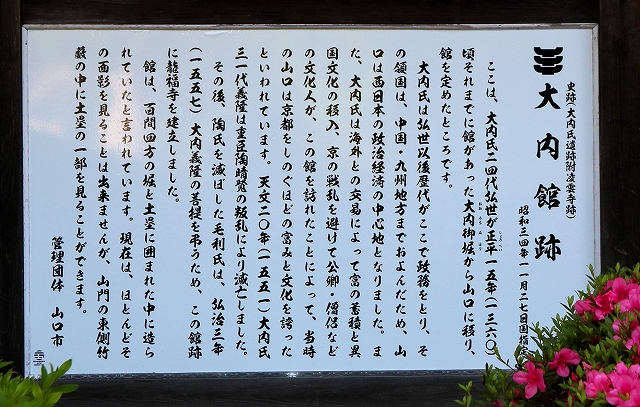 史跡(大内氏遺跡附凌雲寺跡)
大内館跡
昭和三四年一一月二七日国指定
ここは、大内氏二四代弘世が正平一五年(一三六〇)
頃それまでに館があった大内御堀から山口に移り、
館を定めたところです。
大内氏は弘世以後歴代がここで政務をとり、そ
の領国は、中国・九州地方までおよんだため、山
口は西日本の政治経済の中心地となりました。ま
た、大内氏は海外との交易によって富の蓄積と異
国文化の移入、京の戦乱を避けて公卿・僧侶など
の文化人が、この館を訪れたことによって、当時
の山口は京都をしのぐほどの富みと文化を誇った
といわれています。天文二〇年(一五五一)大内氏
三一代義隆は重臣陶晴賢の叛乱により滅亡しました。
その後、陶氏を滅ぼした毛利氏は、弘治三年
(一五五七)大内義隆の菩提を弔うため、この館跡
に龍福寺を建立しました。
館は、百間四方の堀と土塁に囲まれた中に造ら
れていたと言われています。現在は、ほとんどそ
の面影を見ることは出来ませんが、山門の東側竹
藪の中に土塁の一部を見ることができます。
管理団体 山口市